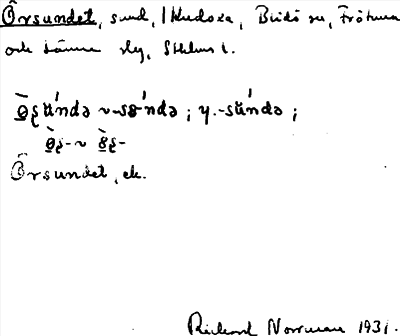 Örsundet, sund, i Kudoxa, Blidö sn, Frötuna
och Länna slg, Sthlms l.
ö̀ʂʉ́ndə ~ -sɵ́ndə ; y. -sʉ́ndə ;
Örsundet, ek.
Rickard Norrman 1931.